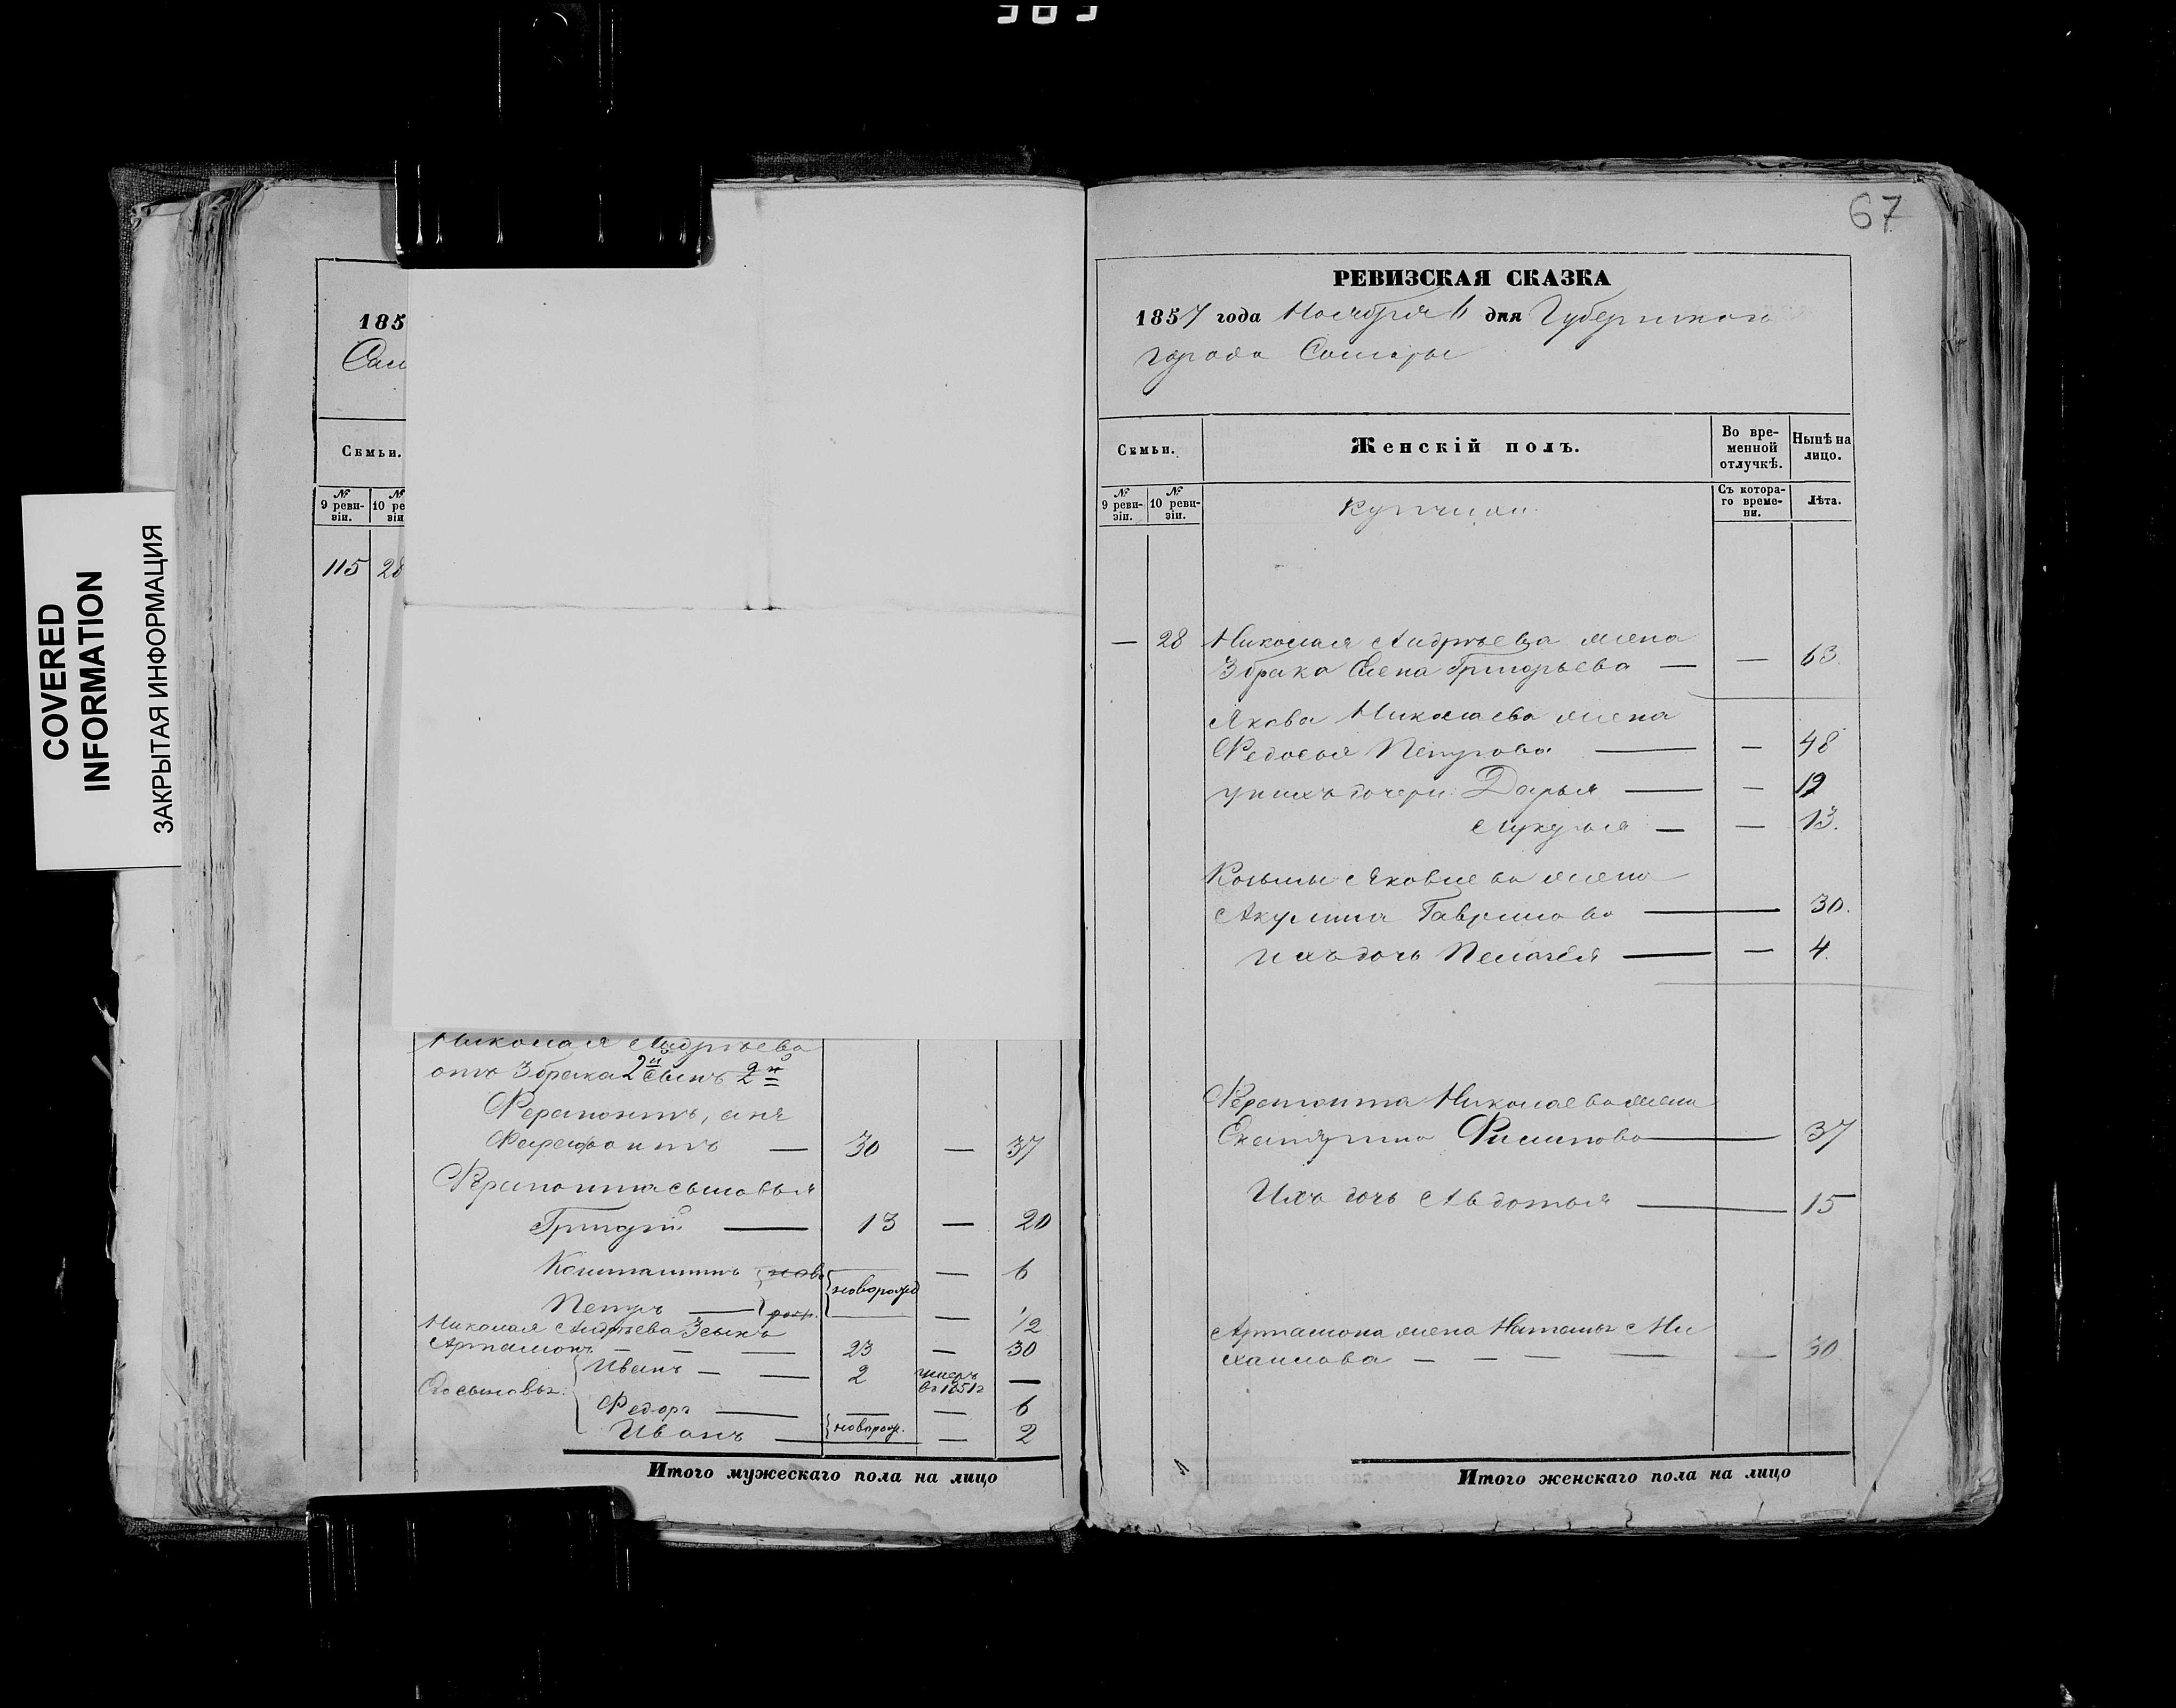 COVERED
INFORMATION
ЗАКРЫТАЯ ИНФОРМАЦИЯ
185
Сам
Семьи.
№
9 реви-
зіи.
№
10 ре
зіи
115 28
Николая Андрѣева
отъ 3 брака 2й сынъ 2й
Ферапонтъ, а не
Фарафонтъ — 30 — 37
Ферапонта сыновья
Григорій — 13 — 20
Константинъ — новорожд — 6
Петръ — — 1/2
Николая Андрѣева 3 сынъ
Артамонъ — — — 23 — 30
Его сыновья: Иванъ — — 2 умеръ въ 1851г —
Федоръ — — — 6
Иванъ — новорож. — 2
Итого мужескаго пола на лицо
67
РЕВИЗСКАЯ СКАЗКА
1857 года Ноября 6 дня Губернскаго
города Самары
Семьи.
Женскій полъ.
Во вре-
менной
отлучкѣ.
Нынѣ на
лицо.
№
9 реви-
зіи.
№
10 реви-
зіи.
Купчихи
Съ котора-
го време-
ни.
Лѣта.
— 28 Николая Андрѣева жена
3 брака Елена Григорьева — — 63.
Якова Николаева жена
Федосья Петрова — — 48
у нихъ дочери: Дарья — —
Лукерья — — 13.
Козьмы Яковлева жена
Акулина Гаврилова — 30.
ихъ дочь Пелагея — — 4.
Ферапонта Николаева жена
Екатерина Филипова — 37
Ихъ дочь Авдотья — 15
Артамона жена Наталья Ми
хаилова — — — — — 30
Итого женскаго пола на лицо